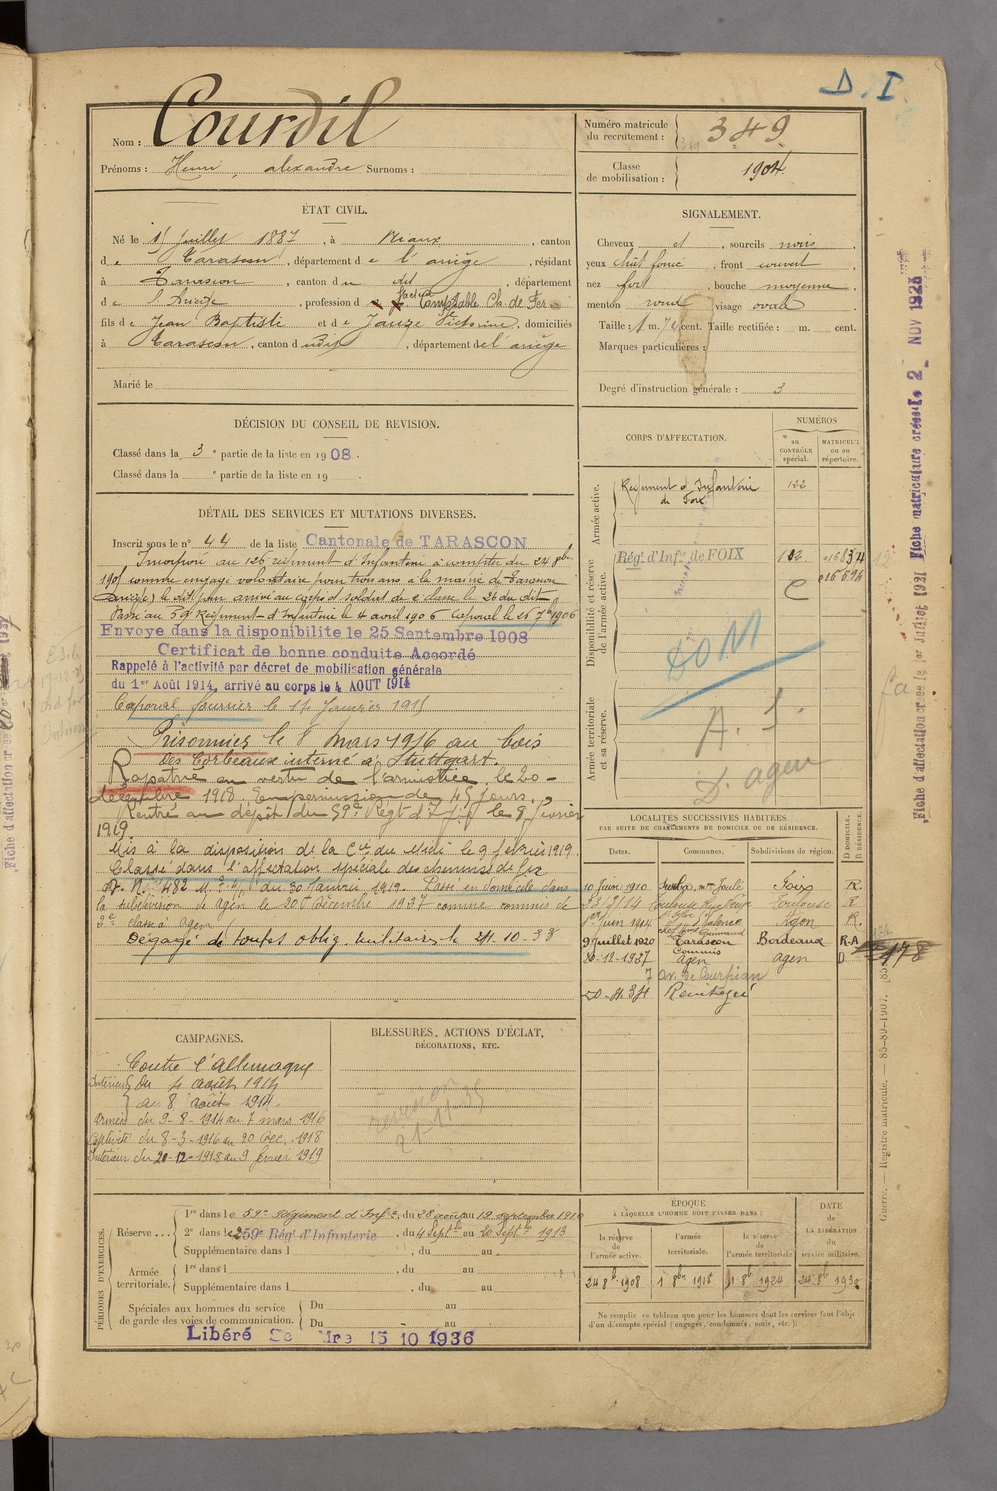 D. I.
Nom : Courdil
Prénoms : Henri, alexandre Surnoms :
Numéro matricule du recrutement : 349
Classe de mobilisation : 1904
ÉTAT CIVIL.
Né le 15 Juillet 1887, à Niaux, canton
de Tarascon, département de l'ariège, résidant
à Tarascon, canton du dit, département
de l'Ariège, profession de Comptable Ch. de Fer
fils de Jean Baptiste et de Jauze Victorine, domiciliés
à Tarascon, canton dudit, département de l'ariège
Marié le
SIGNALEMENT.
Cheveux et, sourcils noirs,
yeux chât foncé, front couvert,
nez fort, bouche moyenne,
menton rond visage ovale
Taille : 1 m. 74 cent. Taille rectifiée : m. cent.
Marques particulières :
Degré d'instruction générale : 3
DÉCISION DU CONSEIL DE REVISION.
Classé dans la 3e partie de la liste en 1908.
Classé dans la e partie de la liste en 19
DÉTAIL DES SERVICES ET MUTATIONS DIVERSES.
Inscrit sous le n° 44 de la liste Cantonale de TARASCON
Incorporé au 126 régiment d'Infanterie à compter du 24 8bre
1905 comme engagé volontaire pour trois ans à la mairie de Tarascon
(Ariège) le dit jour arrivé au corps et soldat de 2e classe le 26 du dit
Passé au 59 Régiment d'Infanterie le 4 avril 1906 Caporal le 25 7bre 1906
Envoye dans la disponibilite le 25 Septembre 1908
Certificat de bonne conduite Accordé
Rappelé à l'activité par décret de mobilisation générale
du 1er Août 1914, arrivé au corps le 4 AOUT 1914
Caporal fourrier le 17 Janvier 1915
Prisonnier le 8 mars 1916 au bois
des Corbeaux interné à Stuttgart.
Rapatrié en vertu de l'armistice, le 20
décembre 1918. En permission de 45 jours.
Rentré au dépôt du 59e Régt d'Inf le 8 février
1919.
Mis à la disposition de la Cie du Midi le 9 février 1919.
Classé dans l'affectation spéciale des chemins de fer
du 30 Janvier 1919. Passé en domicile dans
la subdivision de agen le 20 Décembre 1937 comme commis de
2e classe à agen
Dégagé de toutes oblig. militaires le 21.10-38
CORPS D'AFFECTATION.
NUMÉROS
au CONTRÔLE spécial.
MATRICULE ou au répertoire.
Armée active.
Régiment d'Infanterie de Foix 122
Disponibilité et réserve de l'armée active.
Rég. d'Infie de FOIX
C
DOM
Armée territoriale et sa réserve.
A. S.
D. agen
LOCALITÉS SUCCESSIVES HABITÉES
PAR SUITE DE CHANGEMENTS DE DOMICILE OU DE RÉSIDENCE.
Dates. Communes. Subdivisions de région. D DOMICILE. R RÉSIDENCE.
10 Juin 1910 Foix R.
Toulouse Toulouse R
1er Juin 1914 Valence Agen R.
9 Juillet 1920 Tarascon Bordeaux R.A
20-12-1937 Commis Agen agen D
7 av. de Courpian
178
CAMPAGNES.
Contre l'Allemagne
Intérieur du 4 août 1914
au 8 août 1914.
Armées du 9-8-1914 au 7 mars 1916
Captivité du 8-3-1916 au 20 Déc. 1918
Intérieur du 20-12-1918 au 9 février 1919
BLESSURES, ACTIONS D'ÉCLAT,
DÉCORATIONS, ETC.
PÉRIODES D'EXERCICES.
Réserve . . . 1re dans le 59e Régiment d'Infie, du 28 août au 19 septembre 1910
2e dans le 259e Rég' d'Infanterie, du 4 Septbre au 20 Septbre 1913
Supplémentaire dans l , du au .
Armée territoriale. 1re dans l , du au
Supplémentaire dans l , du au
Spéciales aux hommes du service de garde des voies de communication. Du au
Du au
Libéré Mre 15 10 1936
ÉPOQUE
À LAQUELLE L'HOMME DOIT PASSER DANS :
la réserve de l'armée active. l'armée territoriale. la réserve de l'armée territoriale
DATE de LA LIBÉRATION du service militaire.
24 8bre 1908 1 8bre 1918 1 8bre 1924 24 8bre 1930
Ne remplir ce tableau que pour les hommes dont les services font l'objet
d'un décompte spécial (engagés, condamnés, omis, etc.).
Guerre. — Registre matricule. — 85-89-1907.
Fiche matriculaire créée le 2 NOV 1925
Fiche d'affectation créée le 1er Juillet 1931